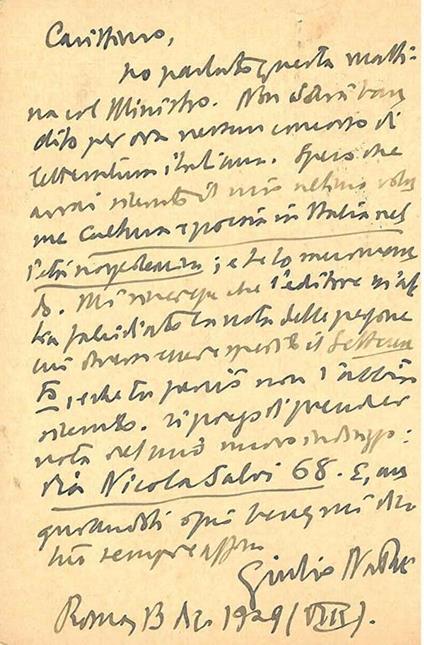 Carissimo,
ho parlato questa matti-
na col Ministro. Non sarà ban
dito per ora nessun concorso di
letteratura italiana. Spero che
avrai ricevuto il mio ultimo volu
me Cultura e poesia in Italia nel
l'età napoleonica; e te lo raccoman
do. Mi rincresce che l'editore m'ab
bia la nota delle persone
cui doveva essere spedito il Settecen
to, e che tu perciò non l'abbia
ricevuto. Ti prego di prender
nota del mio nuovo indirizzo:
Via Nicola Salvi 68. E, au
gurandoti ogni bene, mi dico
tuo sempre aff.mo
Giulio Natali
Roma, 13 dic. 1929 (VIII).